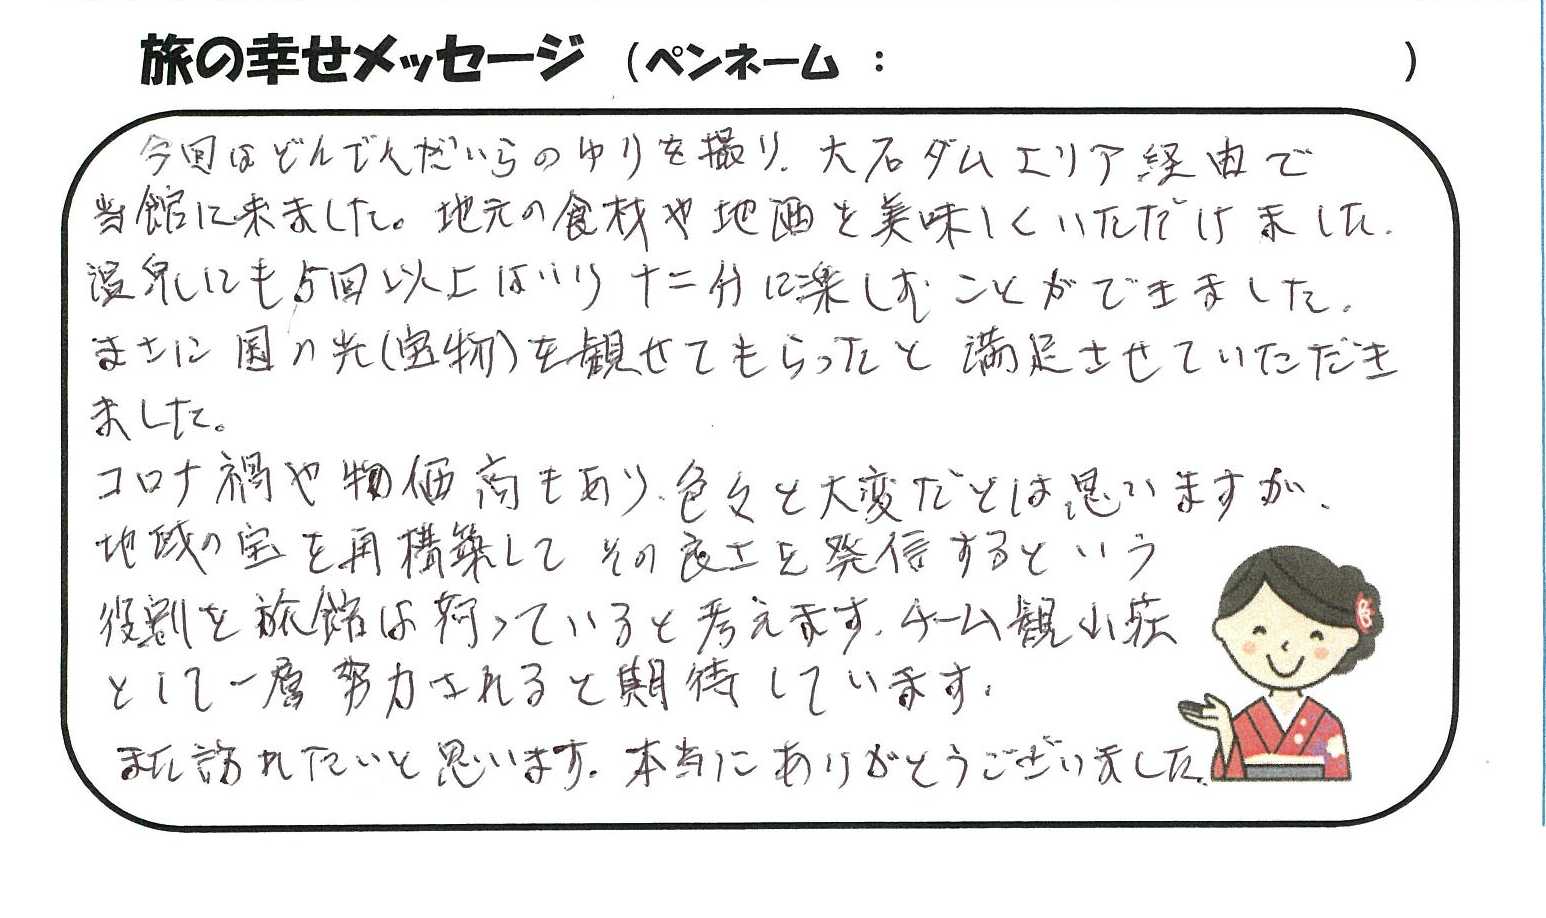 旅の幸せメッセージ (ペンネーム : )
今回はどんでんだいらのゆりを撮り、大石ダムエリア経由で
当館に来ました。地元の食材や地酒を美味しくいただけました。
温泉にも5回以上はいり十二分に楽しむことができました。
まさに国の光(宝物)を観せてもらったと満足させていただき
ました。
コロナ禍や物価高もあり、色々と大変だとは思いますが、
地域の宝を再構築してその良さを発信するという
役割を旅館は荷っていると考えます。チーム観山荘
として一層努力されると期待しています。
また訪れたいと思います。本当にありがとうございました。